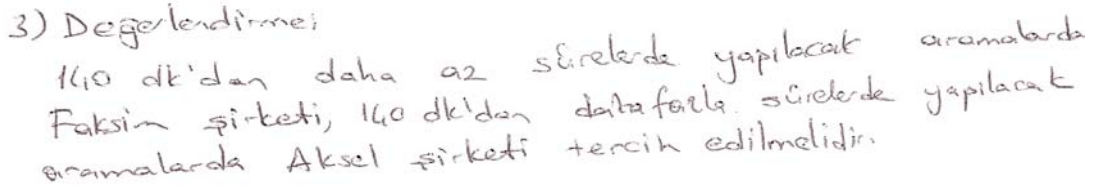 3) Değerlendirme:
140 dk'dan daha az sürelerde yapılacak aramalarda
Faksim şirketi, 140 dk'dan daha fazla sürelerde yapılacak
aramalarda Aksel şirketi tercih edilmelidir.